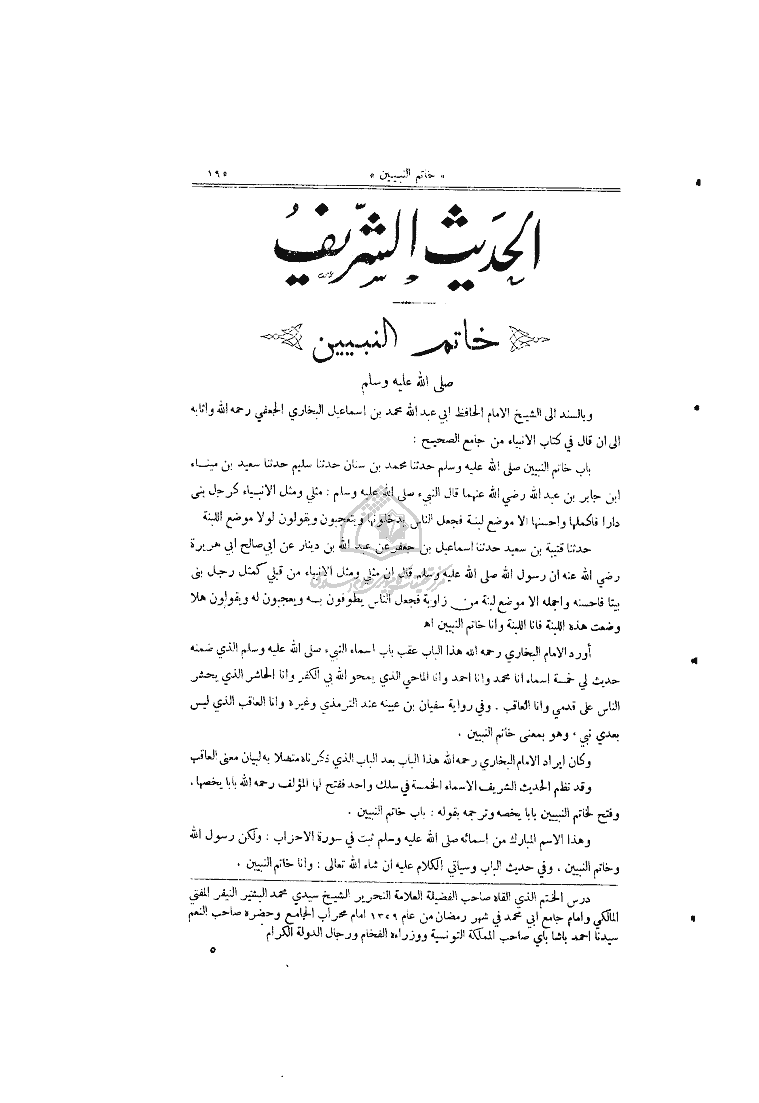 « خاتم النبيين » ١٩٥
الحديث الشريف
خاتم النبيين
صلى الله عليه وسلم
وبالسند الى الشيخ الامام الحافظ ابي عبد الله محمد بن اسماعيل البخاري الجعفي رحمه الله واثابه
الى ان قال في كتاب الانبياء من جامع الصحيح :
باب خاتم النبيين صلى الله عليه وسلم حدثنا محمد بن سنان حدثنا سليم حدثنا سعيد بن ميناء
ابن جابر بن عبد الله رضي الله عنهما قال النبيء صلى الله عليه وسلم : مثلي ومثل الانبياء كرجل بنى
دارا فاكملها واحسنها الا موضع لبنة فجعل الناس يدخلونها ويتعجبون ويقولون لولا موضع اللبنة
حدثنا قتيبة بن سعيد حدثنا اسماعيل بن جعفر عن عبد الله بن دينار عن ابي صالح ابي هريرة
رضي الله عنه ان رسول الله صلى الله عليه وسلم قال ان مثلي ومثل الانبياء من قبلي كمثل رجل بنى
بيتا فاحسنه واجمله الا موضع لبنة من زاوية فجعل الناس يطوفون به ويعجبون له ويقولون هلا
وضعت هذه اللبنة فانا اللبنة وانا خاتم النبيين اه
أورد الامام البخاري رحمه الله هذا الباب عقب باب اسماء النبيء صلى الله عليه وسلم الذي ضمنه
حديث لي خمسة اسماء انا محمد وانا احمد وانا الماحي الذي يمحو الله بي الكفر وانا الحاشر الذي يحشر
الناس على قدمي وانا العاقب . وفي رواية سفيان بن عيينه عند الترمذي وغيره وانا العاقب الذي ليس
بعدي نبي ، وهو بمعنى خاتم النبيين .
وكان ايراد الامام البخاري رحمه الله هذا الباب بعد الباب الذي ذكرناه متصلا به لبيان معنى العاقب
وقد نظم الحديث الشريف الاسماء الخمسة في سلك واحد ففتح لها المؤلف رحمه الله بابا يخصها ،
وفتح لخاتم النبيين بابا يخصه وترجمه بقوله : باب خاتم النبيين .
وهذا الاسم المبارك من اسمائه صلى الله عليه وسلم ثبت في سورة الاحزاب : ولكن رسول الله
وخاتم النبيين ، وفي حديث الباب وسياتي الكلام عليه ان شاء الله تعالى : وانا خاتم النبيين .
درس الختم الذي القاه صاحب الفضيلة العلامة النحرير الشيخ سيدي محمد البشير النيفر المفتي
المالكي وامام جامع ابي محمد في شهر رمضان من عام ١٣٤٩ امام محراب الجامع وحضره صاحب النعم
سيدنا احمد باشا باي صاحب المملكة التونسية ووزراءه الفخام ورجال الدولة الكرام
٥